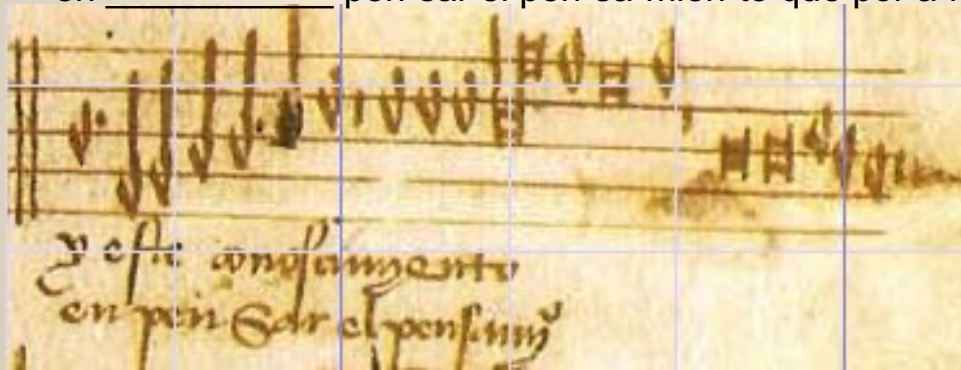 en ____________ pen-sar el pen-sa-mien-to que por a-
y este conosçimyento
en pen Sar el